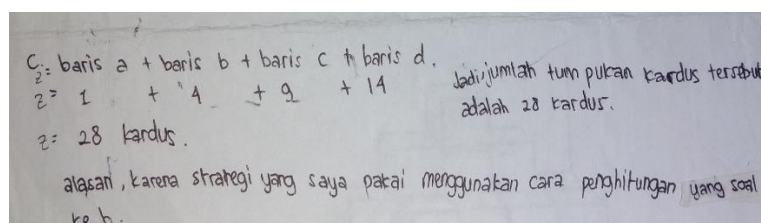 C. z = baris a + baris b + baris c + baris d.
z = 1 + 4 + 9 + 14
z = 28 kardus.
Jadi, jumlah tumpukan kardus tersebut
adalah 28 kardus.
alasan, karena strategi yang saya pakai menggunakan cara penghitungan yang soal
ke b.